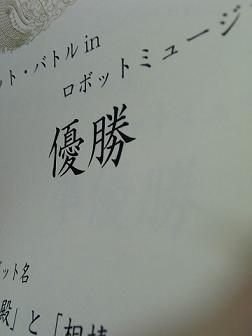 ット・バトル in
ロボットミュージ
優勝
ット名
殿」と「相棒